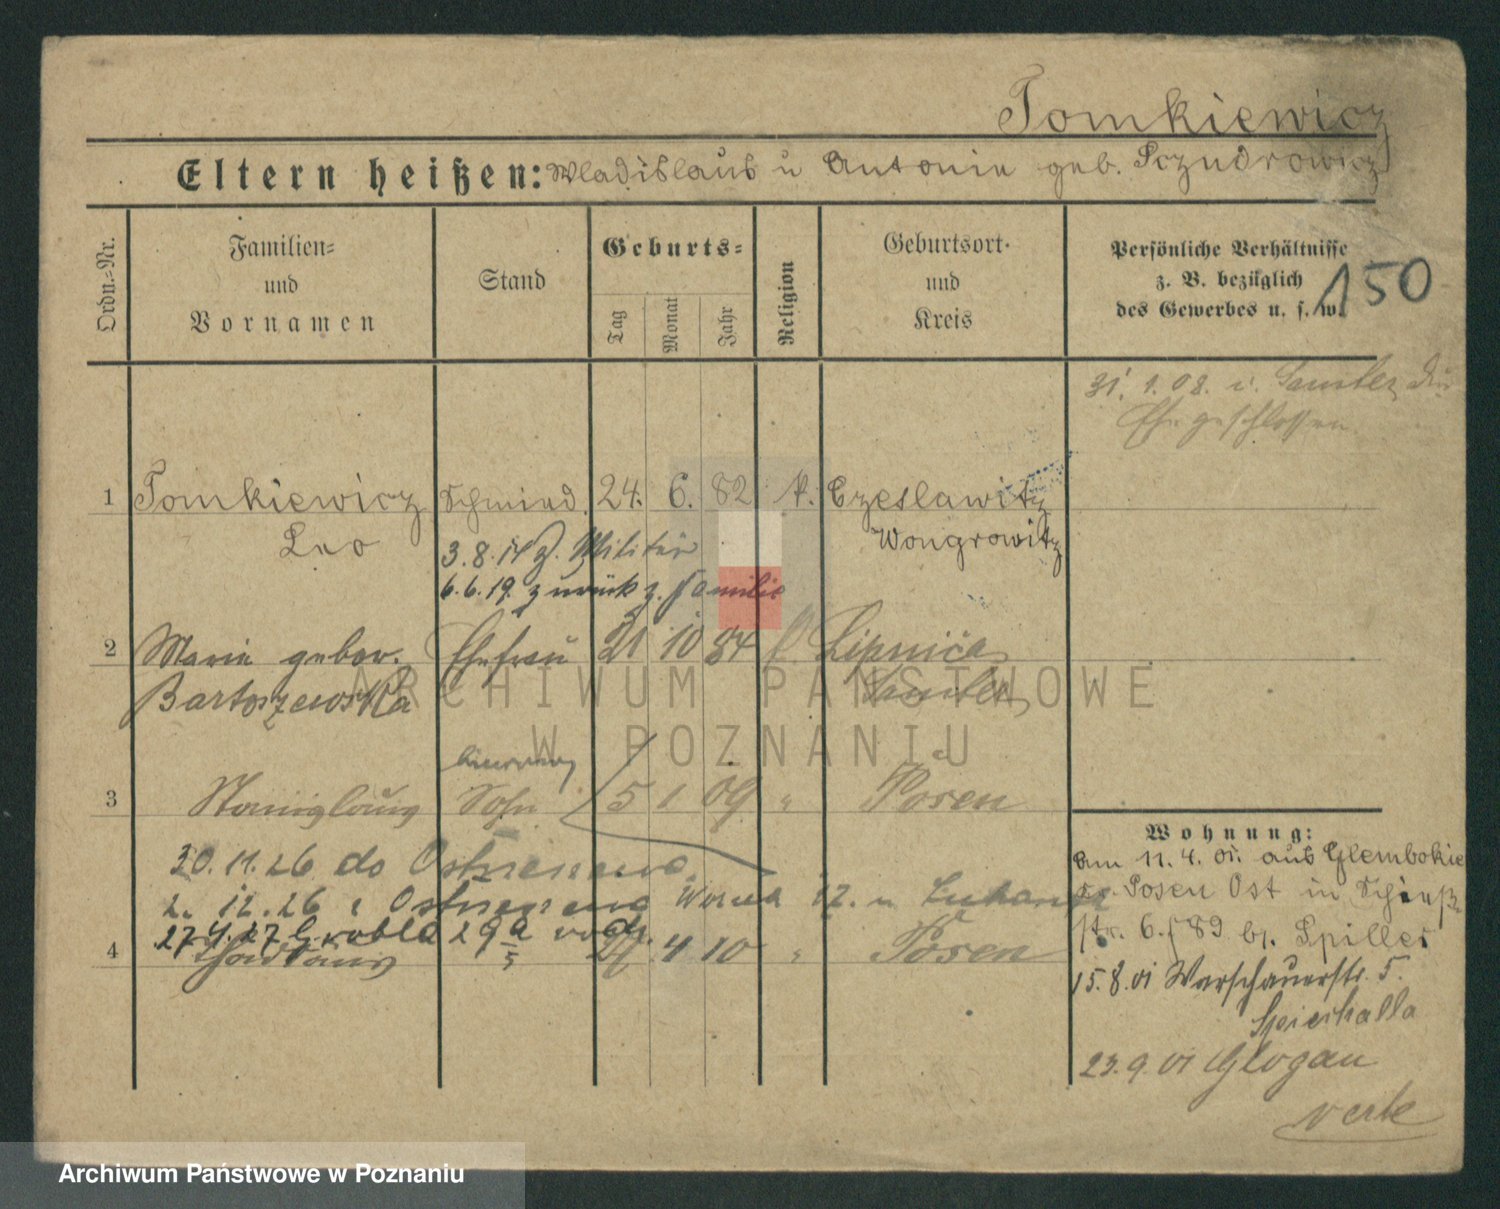 Tomkiewicz
Eltern heißen: Wladislaus u Antonie geb. Sczudrowicz
Ordn.-Nr.
Familien-
und
Vornamen
Stand
Geburts-
Tag
Monat
Jahr
Religion
Geburtsort-
und
Kreis
Persönliche Verhältnisse
z. B. bezüglich
des Gewerbes u. s. w.
150
31. 1. 08. i. Samter die
Ehe geschlossen
1 Tomkiewicz Schmied. 24. 6. 82 k. Czeslawitz
Leo Wongrowitz
3. 8. 14 z. Militär
6. 6. 19. zurück z. Familie
2 Marie gebor. Ehefrau 21 10 84 k. Lipnica
Bartoszewska Samter
3 Stanislaus Sohn 5 1 09 " Posen
30. 11. 26 do
2. 12. 26
27.4.27 Grobla 29a
4 Thadäus 4 10 " Posen
Wohnung:
am 11. 4. 01. aus Glembokie
Kr. Posen Ost in Schieß-
str. 6. f 89 b. Spiller
15. 8. 01 Warschauerstr. 5.
23. 9. 01 Glogau
verte
ARCHIWUM PAŃSTWOWE
W POZNANIU
Archiwum Państwowe w Poznaniu